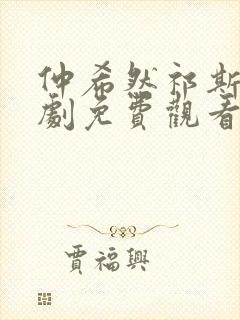 仲希然祁斯
劇免費觀看
賈福興